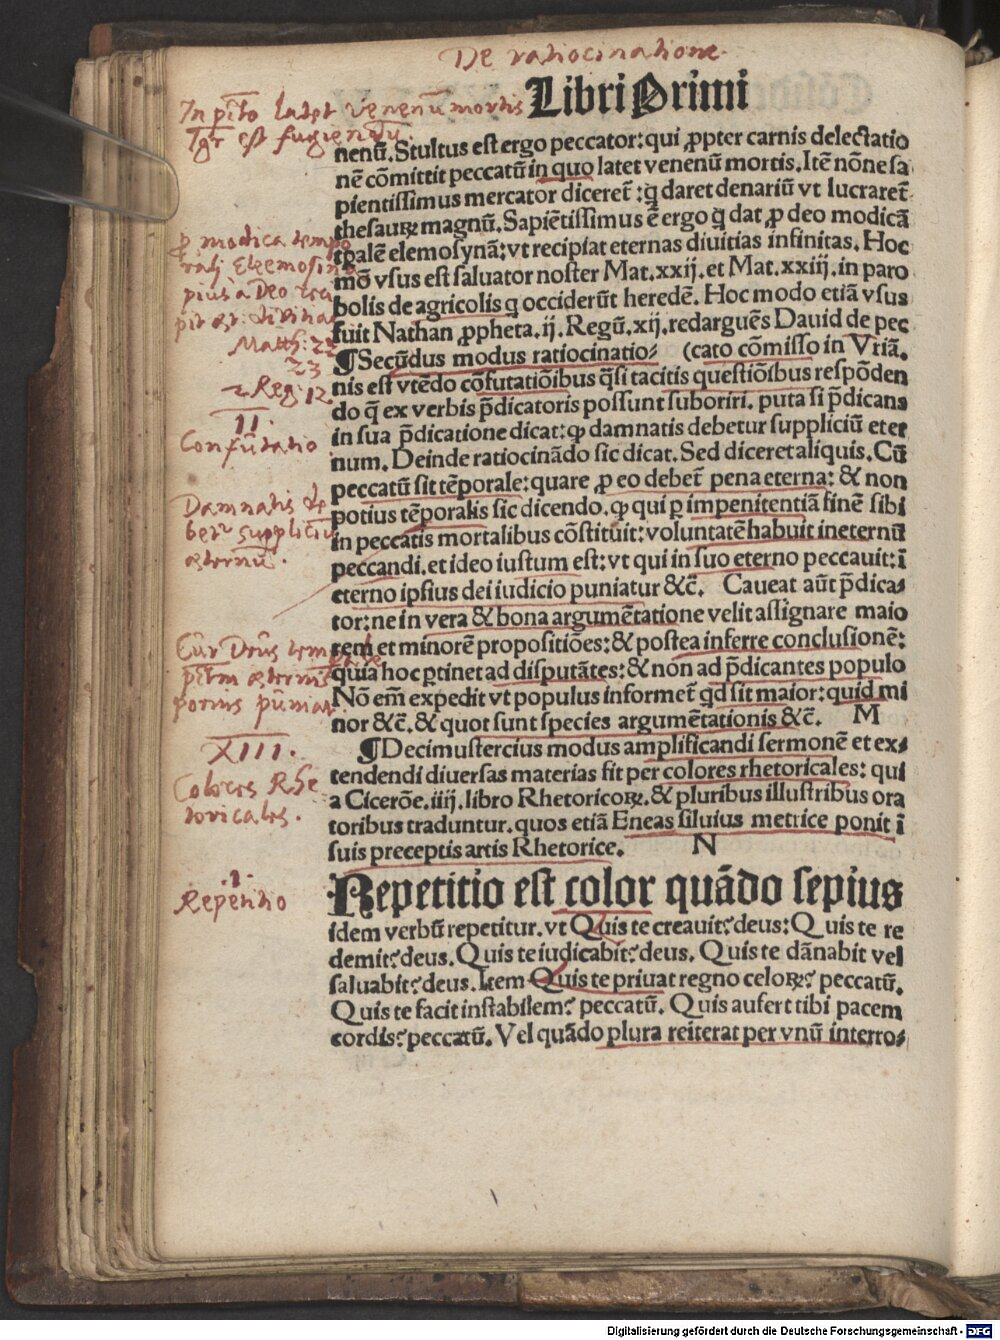 De ratiocinatione.
Libri Primi
In pc̄to latet venenū mortis
Igr̄ est fugiendū.
nenū. Stultus est ergo peccator: qui ꝓpter carnis delectatio
nē cōmittit peccatū in quo latet venenū mortis. Itē nōne sa
pientissimus mercator diceret̄: q̄ daret denariū vt lucraret̄
thesauꝝ magnū. Sapiētissimus ē ergo q̄ dat ꝓ deo modicā
tp̄alē elemosynā: vt recipiat eternas diuitias infinitas. Hoc
mō vsus est saluator noster Mat. xxij. et Mat. xxiij. in paro
bolis de agricolis q̄ occiderūt heredē. Hoc modo etiā vsus
fuit Nathan ꝓpheta. ij. Regū. xij. redarguēs Dauid de pec
p̱ modica tempo
rali Eleemosina
pius a Deo reci
pit æt: divitias
Matth: 22
23
2 Reg: 12
¶ Secūdus modus ratiocinatio⸗ (cato cōmisso in Vriā.
nis est vtēdo cōfutatiōibus q̄si tacitis questiōibus respōden
do q̄ ex verbis p̄dicatoris possunt suboriri. puta si p̄dicans
in sua p̄dicatione dicat: ꝙ damnatis debetur suppliciū eter
num. Deinde ratiocinādo sic dicat. Sed diceret aliquis. Cū
peccatū sit tēporale: quare ꝓ eo debet̄ pena eterna: & non
potius tēporalis sic dicendo. ꝙ qui ꝑ impenitentiā finē sibi
in peccatis mortalibus cōstituit: voluntatē habuit ineternū
peccandi. et ideo iustum est: vt qui in suo eterno peccauit: ī
eterno ipsius dei iudicio puniatur &c̄. Caueat aūt p̄dica⸗
tor: ne in vera & bona argumētatione velit assignare maio
rem et minorē propositiōes: & postea inferre conclusionē:
quia hoc ꝑtinet ad disputātes: & non ad p̄dicantes populo
Nō em̄ expedit vt populus informet̄ qd̄ sit maior: quid mi
nor &c̄. & quot sunt species argumētationis &c̄. M
II.
Confūtatio
Damnatis de
betr̄ suppliciū
æternū.
Cur Deus tem
pc̄tm̄ æternis
poenis puniat
¶ Decimustercius modus amplificandi sermonē et ex⸗
tendendi diuersas materias fit per colores rhetoricales: qui
a Cicerōe. iiij. libro Rhetoricoꝝ. & pluribus illustribus ora
toribus traduntur. quos etiā Eneas siluius metrice ponit ī
suis preceptis artis Rhetorice. N
XIII.
Colores Rhe
toricales.
.1.
Repetitio
Repetitio est color quādo sepius
idem verbū repetitur. vt Quis te creauit? deus: Quis te re
demit? deus. Quis te iudicabit? deus. Quis te dānabit vel
saluabit? deus. Item Quis te priuat regno celoꝝ? peccatū.
Quis te facit instabilem? peccatū. Quis aufert tibi pacem
cordis? peccatū. Vel quādo plura reiterat per vnū interro⸗
Digitalisierung gefördert durch die Deutsche Forschungsgemeinschaft - DFG